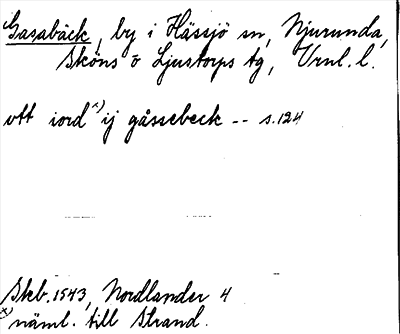 Gasabäck, by i Hässjö sn, Njurunda,
Sköns o Ljustorps tg, Vrnl. l.
vtt iord x) ij gåssebeck -- s.124
Skb. 1543, Nordlander 4
x) näml. till Strand.